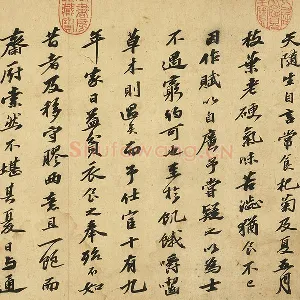 天隨生自言常食杞菊及夏五月
枝葉老硬氣味苦澁猶食不已
因作賦以自廣予嘗疑之以為士
不遇窮約可也至於飢餓嚼齧
草木則過矣而予仕宦十有九
年家日益貧衣食之奉殆不如
昔者及移守膠西意且一飽而
齋廚索然不堪其憂日與通